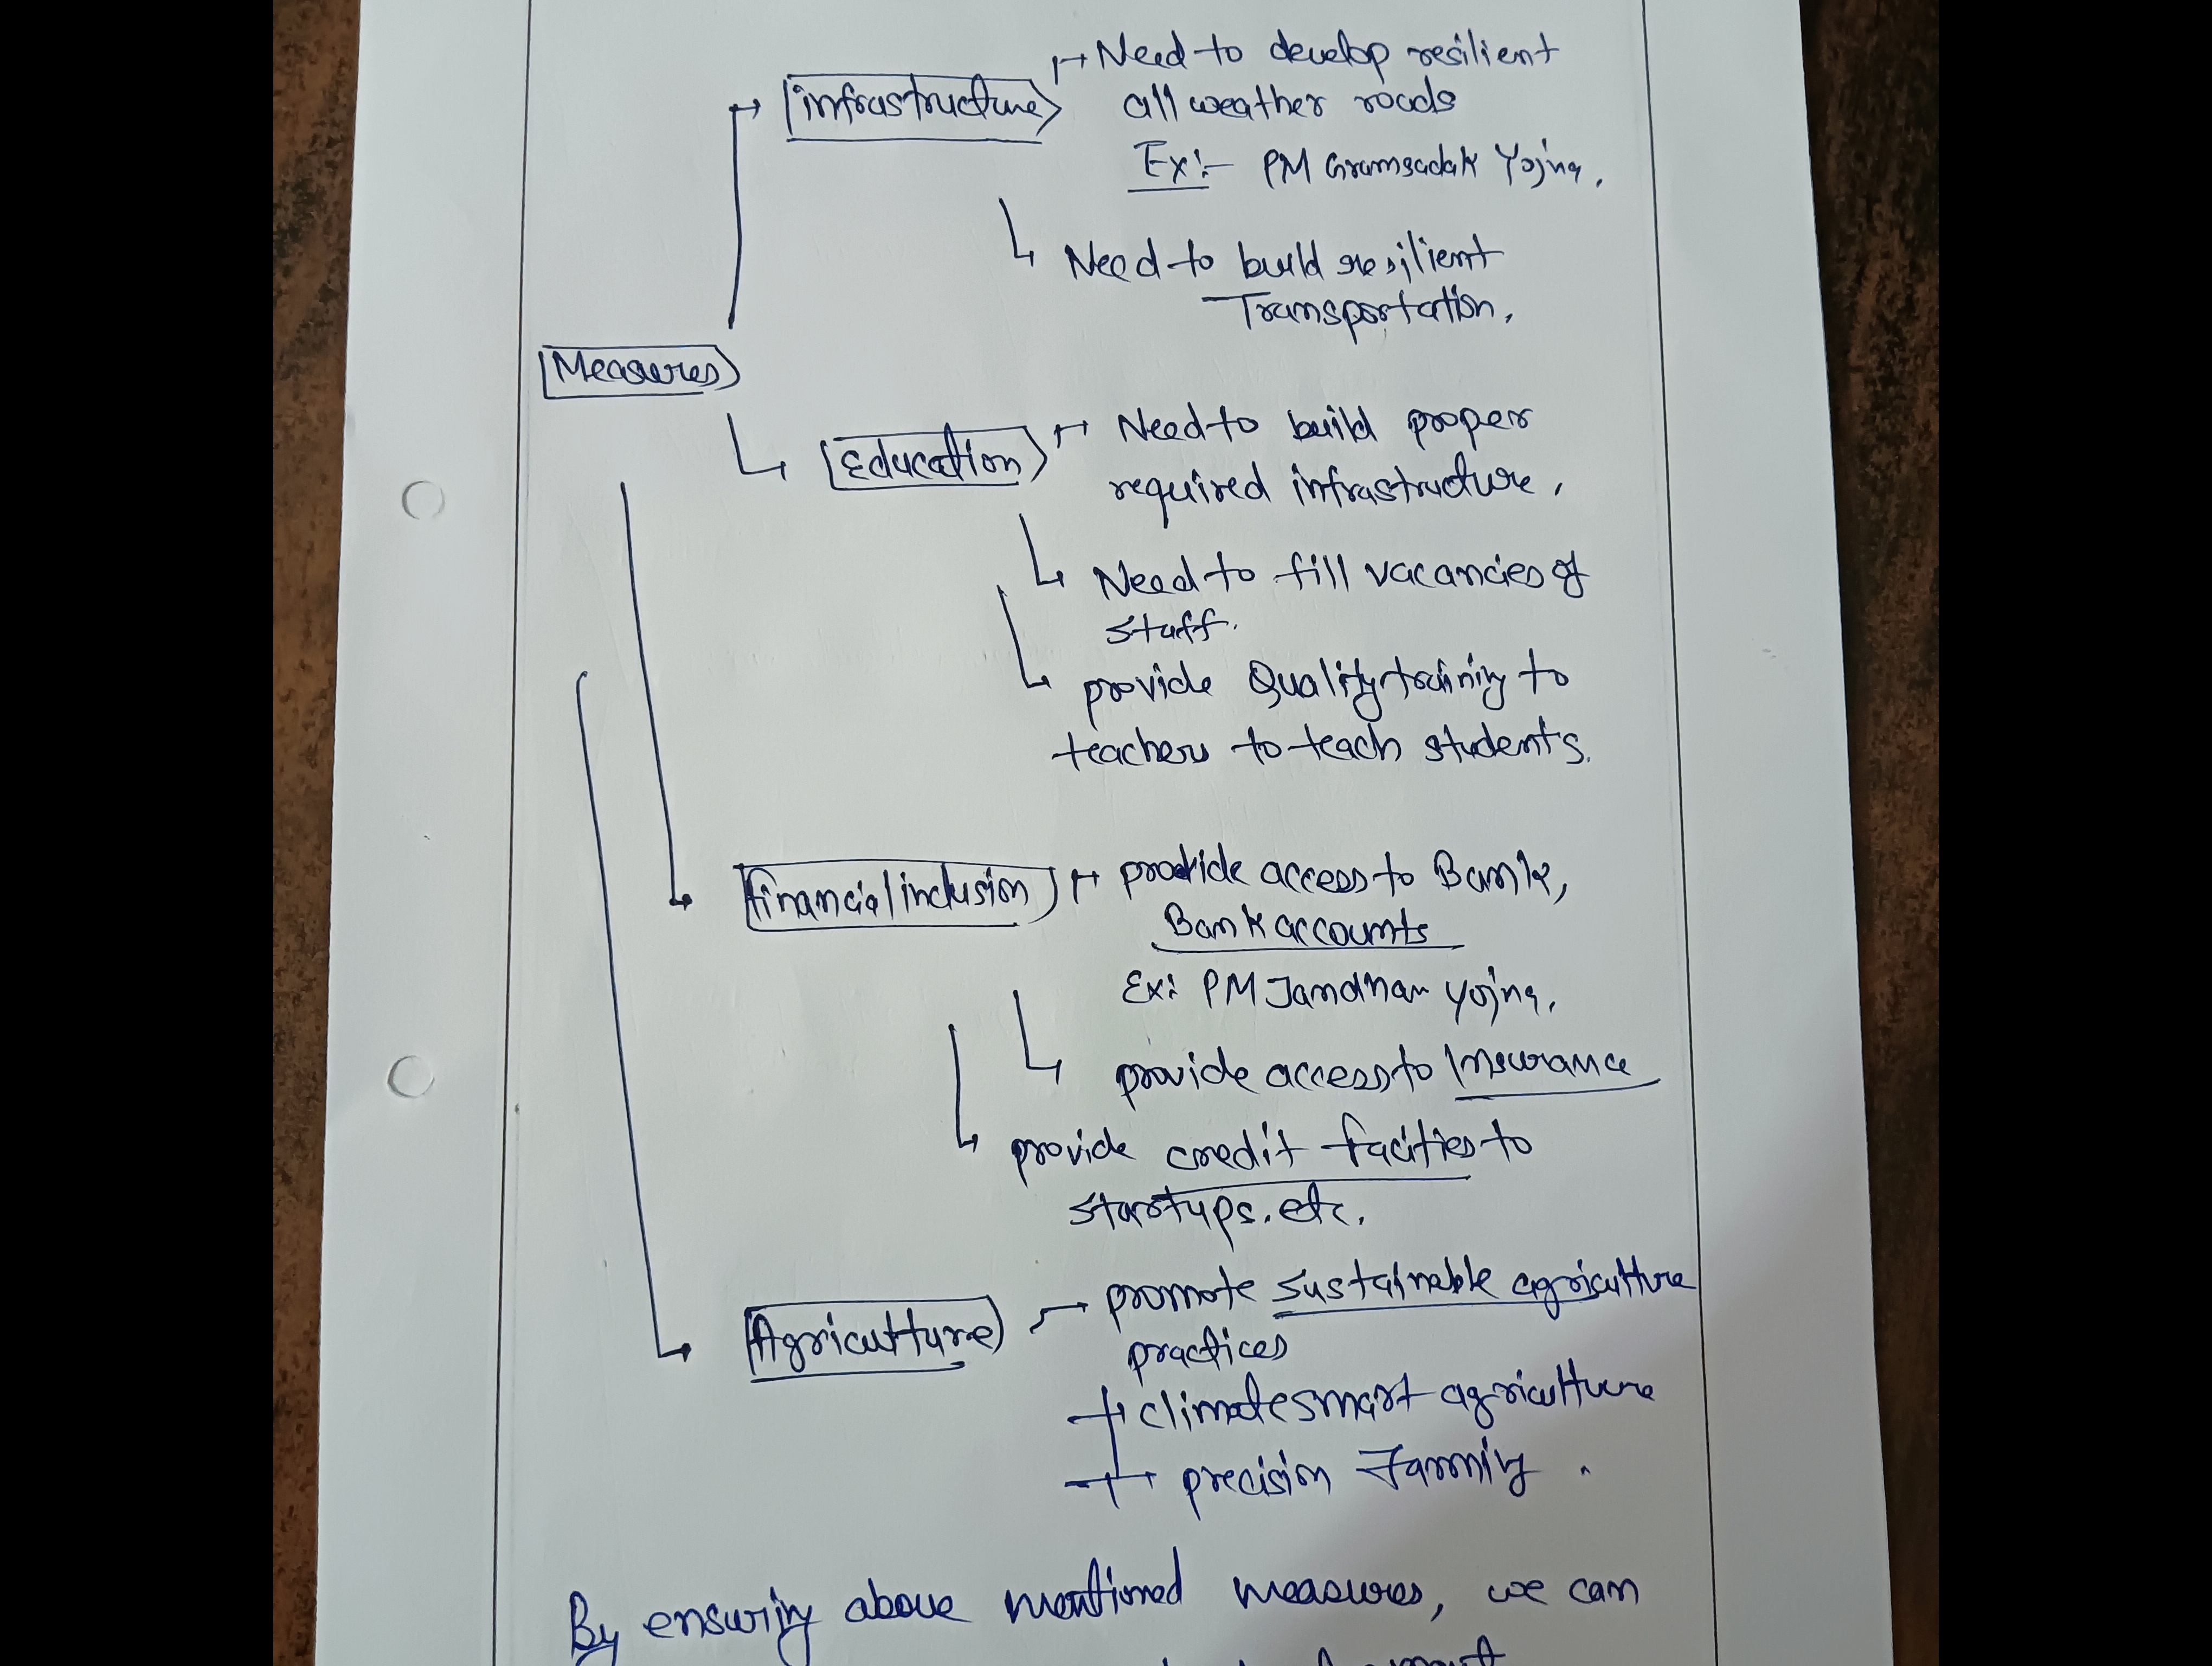 infrastructure
Need to develop resilient
all weather roads
Ex:- PM Gramsadak Yojna.
Need to build resilient
Transportation.
Measures
Education
Need to build proper
required infrastructure.
Need to fill vacancies of
staff.
provide Quality training to
teachers to teach students.
financial inclusion
provide access to Bank,
Bank accounts
Ex: PM Jandhan yojna.
provide access to Insurance
provide credit facities to
startups. etc.
Agriculture
promote sustainable agriculture
practices
climate smart agriculture
precision Farming.
By ensuring above mentioned measures, we can